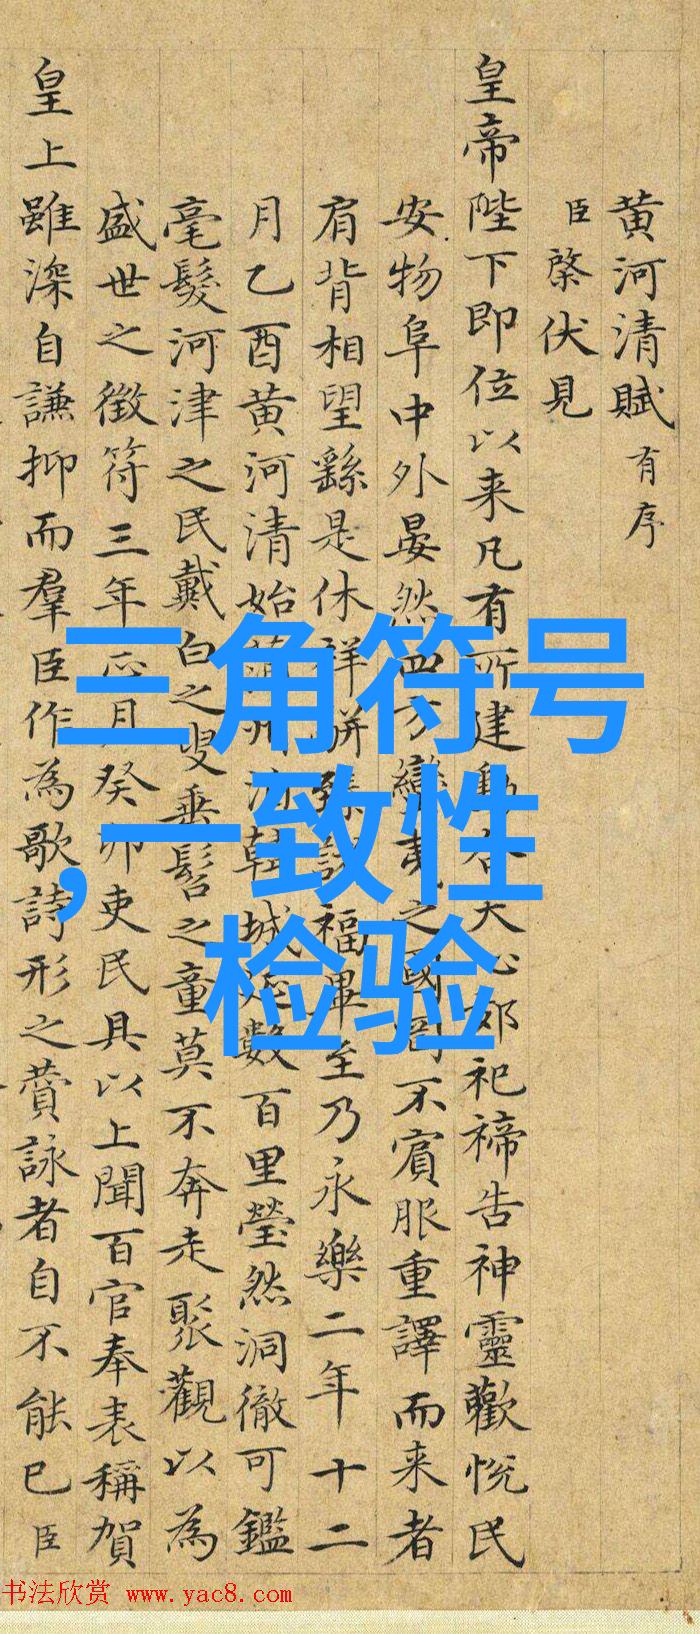 黄河清賦有序
臣棨伏見
皇帝陛下即位以来凡有所建動合天心郊祀禘告神靈歡悅民
安物阜中外晏然四方蠻夷之國罔不賓服重譯而来者
肩背相望繇是休祥駢臻諸福畢至乃永樂二年十二
月乙酉黄河清始蒲州韓城數百里瑩然洞徹可鑑
毫髮河津之民戴白之叟垂髫之童莫不奔走聚觀以為
盛世之徵符三年正月癸卯吏民具以上聞百官奉表稱賀
皇上雖深自謙抑而羣臣作為歌詩形之賛詠者自不能已臣
三角符号
,一致性
检验
书法欣赏 www.yac8.com